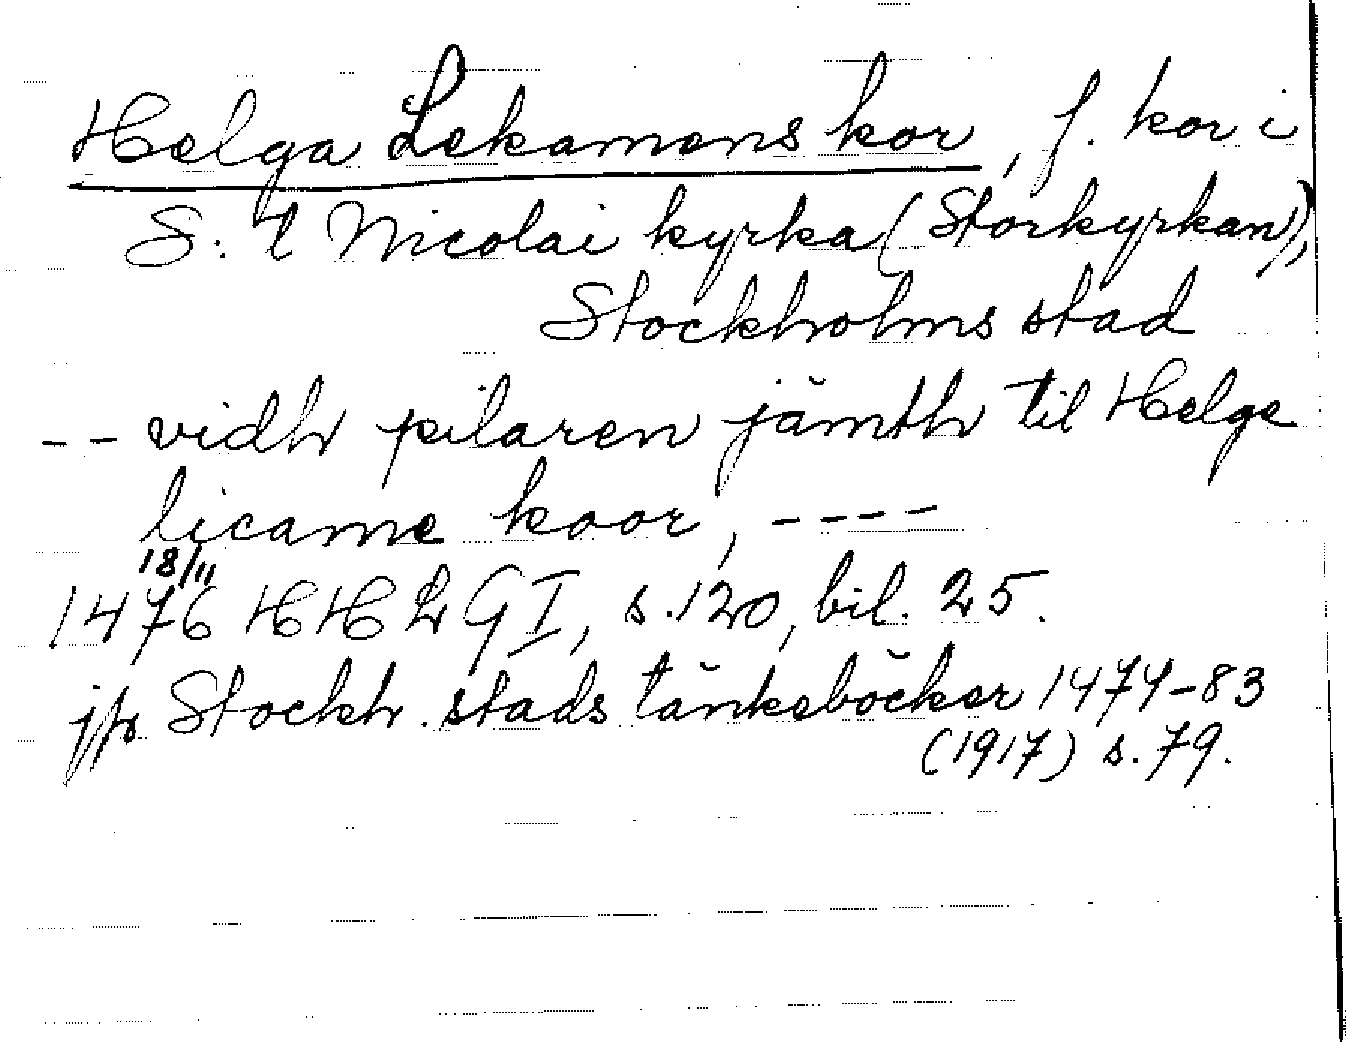 Helga Lekamens kor, f. kor i
S:t Nicolai kyrka (Storkyrkan),
Stockholms stad
-- vidh pilaren jämth til Helge
licame koor, ----
18/11
1476 HHLG I, s. 120, bil. 25.
jfr Stockh. stads tänkeböcker 1474-83
(1917) s. 79.